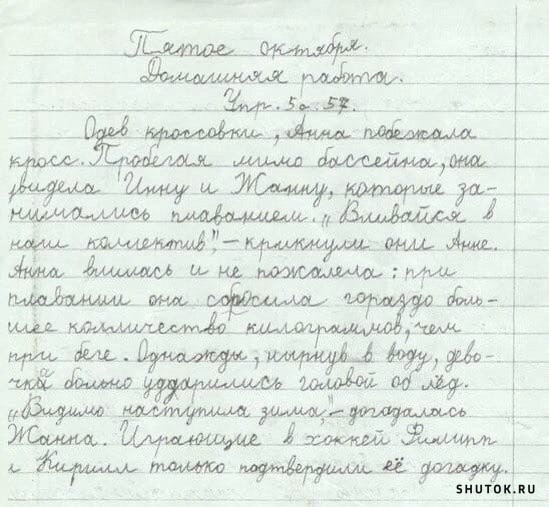 Пятое октября.
Домашняя работа.
Упр. 5 с. 57.
Одев кроссовки, Анна побежала
кросс. Пробегая мимо бассейна, она
увидела Инну и Жанну, которые за-
нимались плаванием. „Вливайся в
наш коллектив", – крикнули они Анне.
Анна влилась и не пожалела: при
плавании она сбросила гораздо боль-
шее колличество килограммов, чем
при беге. Однажды, нырнув в воду, дево-
чки больно ударились головой об лёд.
„Видимо наступила зима", – догадалась
Жанна. Играющие в хоккей Филипп
и Кирилл только подтвердили её догадку.
SHUTOK.RU